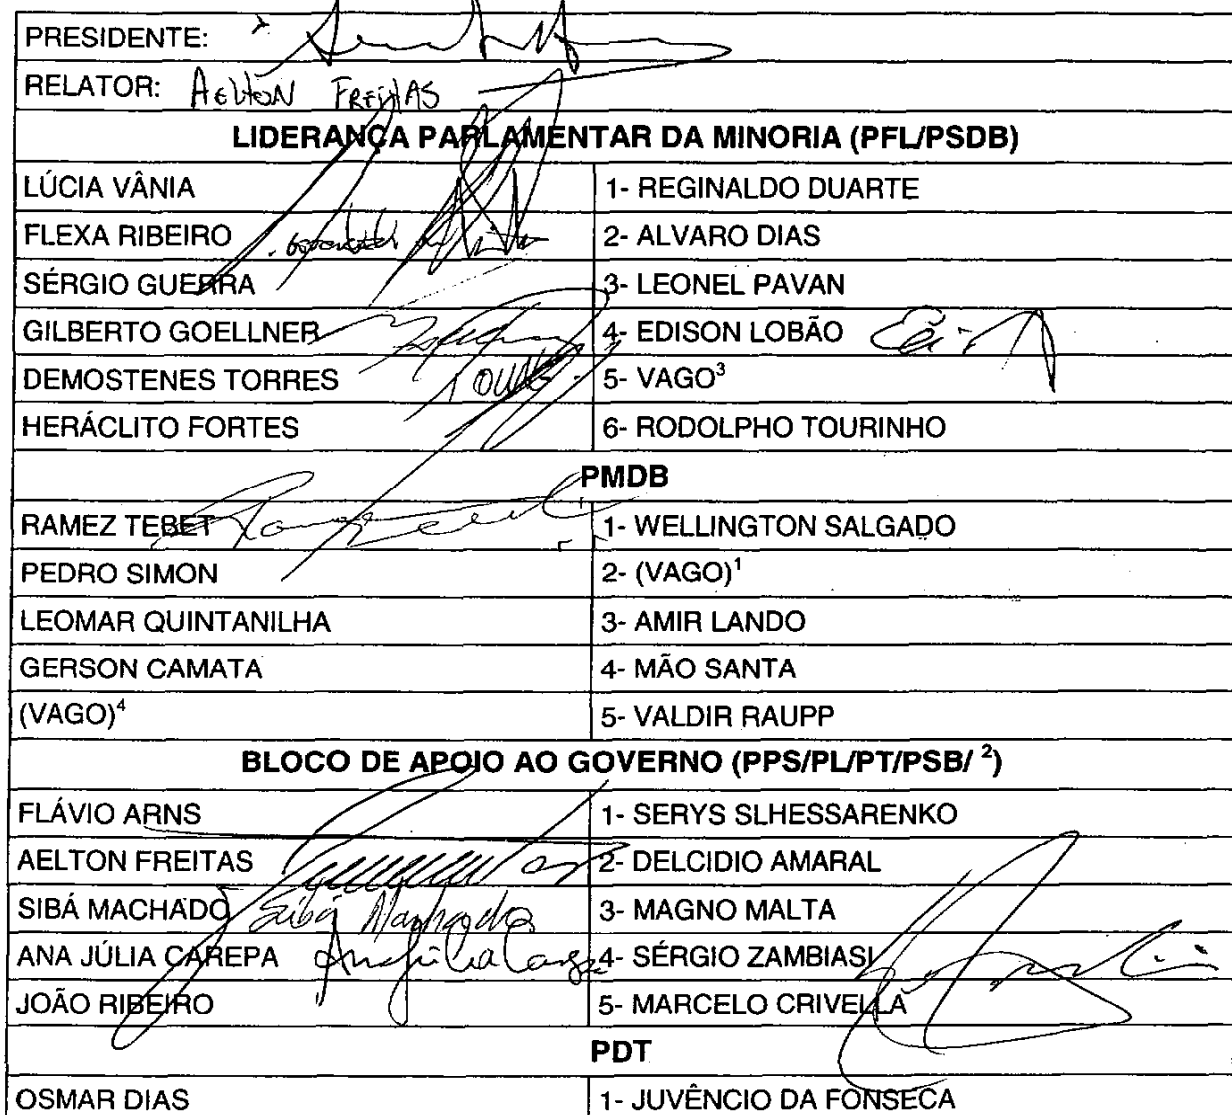 PRESIDENTE:
RELATOR: AELTON FREITAS
LIDERANÇA PARLAMENTAR DA MINORIA (PFL/PSDB)
LÚCIA VÂNIA 1- REGINALDO DUARTE
FLEXA RIBEIRO 2- ALVARO DIAS
SÉRGIO GUERRA 3- LEONEL PAVAN
GILBERTO GOELLNER 4- EDISON LOBÃO
DEMOSTENES TORRES 5- VAGO³
HERÁCLITO FORTES 6- RODOLPHO TOURINHO
PMDB
RAMEZ TEBET 1- WELLINGTON SALGADO
PEDRO SIMON 2- (VAGO)¹
LEOMAR QUINTANILHA 3- AMIR LANDO
GERSON CAMATA 4- MÃO SANTA
(VAGO)⁴ 5- VALDIR RAUPP
BLOCO DE APOIO AO GOVERNO (PPS/PL/PT/PSB/ ²)
FLÁVIO ARNS 1- SERYS SLHESSARENKO
AELTON FREITAS 2- DELCIDIO AMARAL
SIBÁ MACHADO Sibá Machado 3- MAGNO MALTA
ANA JÚLIA CAREPA Ana Júlia Carepa 4- SÉRGIO ZAMBIASI
JOÃO RIBEIRO 5- MARCELO CRIVELLA
PDT
OSMAR DIAS 1- JUVÊNCIO DA FONSECA